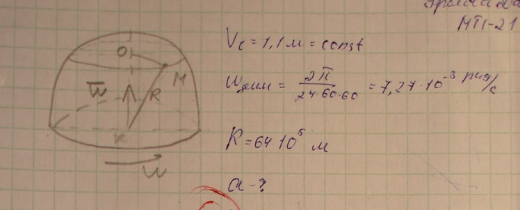 МТ1-21
O
M
W̅
λ
R
K
W
Vc = 1,1 м = const
ωземн = 2π / 24·60·60 = 7,27·10⁻³ рад/с
R = 64·10⁵ м
a - ?